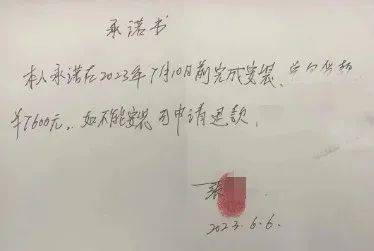 承诺书
本人承诺在2023年7月10日前完成安装、
¥7600元，如不能安装可申请退款，
张
2023.6.6.